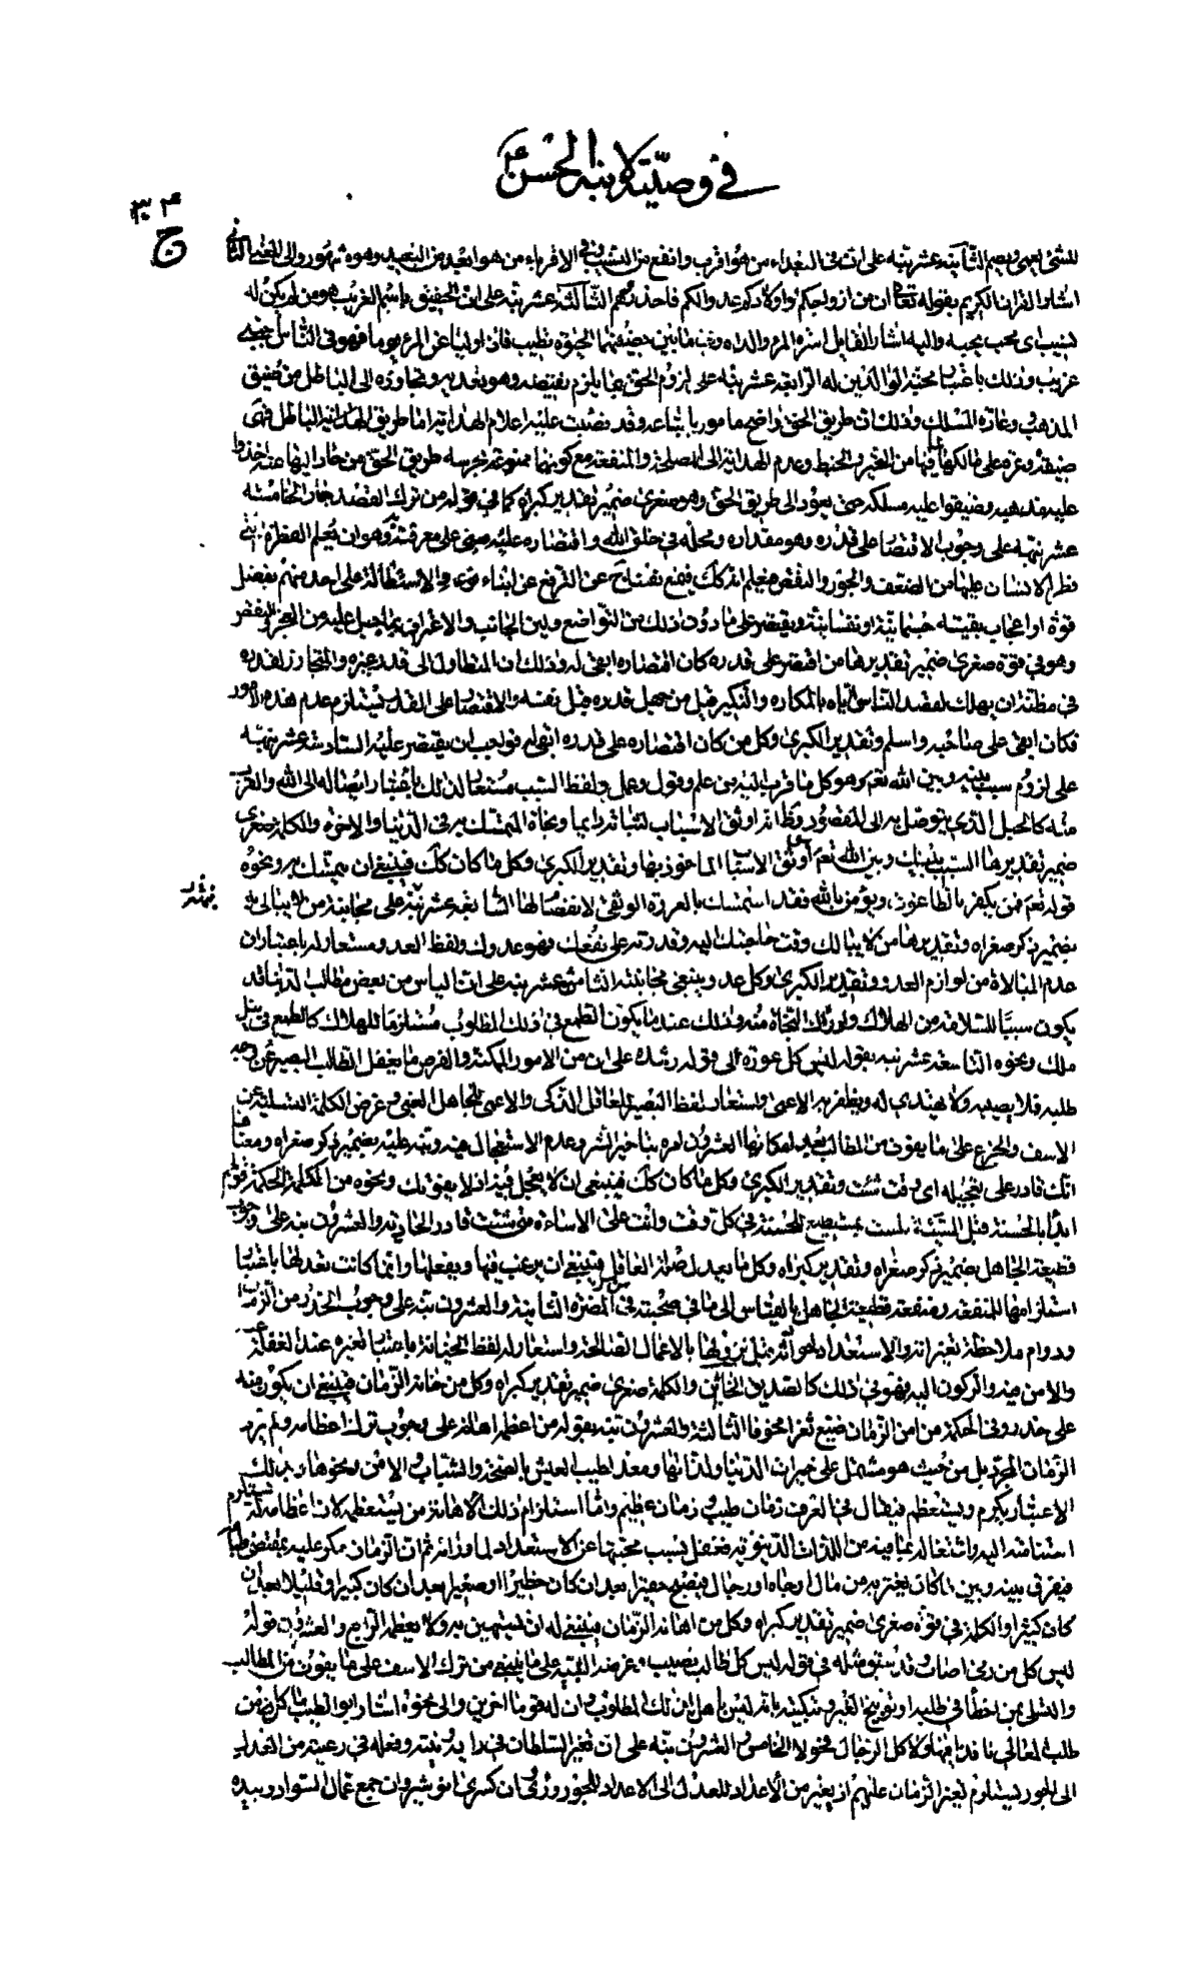 في وصيّته لابنه الحسن ع
ج ٤
للشئ يعمى ويصم الثانية عشر نبّه على ان في البعداء من هو اقرب وانفع من النسيب وفي الاقرباء من هو ابعد من البعيد وهو مشهور والى المعنى الثاني
اشار القران الكريم بقوله تعالى ان من ازواجكم واولادكم عدوا لكم فاحذروهم الثالثة عشر نبّه على ان الحقيق باسم الغريب هو من لم يكن له
حبيب اى محب يحبه واليه اشار القايل اسرة المرء والداه وفيما بين حضنيهما الحيوة تطيب فاذا وليا عن المرء يوما فهو في الناس اجنبى
غريب وذلك باعتبار محبّة الوالدين له الرابعة عشر نبّه على لزوم الحق بما يلزم نقيضه وهو تعديه وتجاوزه الى الباطل من ضيق
المذهب وعارة المسلك وذلك ان طريق الحق واضح مامور باتباعه وقد نصبت عليه اعلام الهداية اما طريق الباطل فهى
ضيقة وعرة على سالكها لما فيها من التحير والخبط وعدم الهداية الى المصلحة والمنفعة مع كونها ممنوعة بحرسة طريق الحق من حاد اليها عنه اخذوا
عليه مذهبه وضيقوا عليه مسلكه حتى يعود الى طريق الحق وهو صغرى ضمير تقدير كبراه كما في قوله من ترك القصد جار الخامسة
عشر نبّه على وجوب الاقتصار على قدره وهو مقداره ومحلّه في خلق الله واقتصاره عليه مبنى على معرفته وهو ان يعلم الفطرة التى
فطر الانسان عليها من الضعف والعجز والنقص فيعلم انه كذلك فيمنع نفسه عن الترفع على ابناء نوعه والاستطالة على احد منهم بفضل
قوة او اعجاب بقينة جسمانية او نفسانية ويقتصر على ما دون ذلك من التواضع ولين الجانب والاعتراف بما جبل عليه من العجز والنقص
وهو في قوة صغرى ضمير تقديرها من اقتصر على قدره كان اقتصاره ابقى له وذلك ان المتطاول الى قدر غيره والمتجاوز لقدره
في مظنة ان يهلك لقصد الناس اياه بالمكاره والنكير قيل من جهل قدره قتل نفسه والاقتصار على القدر يستلزم عدم هذه الامور
فكان ابقى على صاحبه واسلم وتقدير الكبرى وكل من كان اقتصاره على قدره ابقى له فواجب ان يقتصر عليه السادسة عشر نبّه
على لزوم سبب بينه وبين الله تعم وهو كل ما قرب اليه من علم وقول وعمل ولفظ السبب مستعار لذلك باعتبار ايصاله الى الله والقرب
منه كالحبل الذى يتوصل به الى المقصود وظاهر انه اوثق الاسباب لثباته دايما ونجاة المتمسك به في الدنيا والاخرة والكلمة صغرى
ضمير تقديرها السبب بينك وبين الله تعم اوثق الاسباب الماخوذ بها وتقدير الكبرى وكل ما كان كذلك فينبغى ان يتمسك به ونحوه
قوله تعم فمن يكفر بالطاغوت ويؤمن بالله فقد استمسك بالعروة الوثقى لا انفصام لها السابعة عشر نبّه على مجانبة من لا يبالى به
بضمير ذكر صغراه وتقديرها من لا يبالك وقت حاجتك اليه وقدرته على نفعك فهو عدوك ولفظ العدو مستعار له باعتبار ان
عدم المبالاة من لوازم العدو وتقدير الكبرى وكل عدو ينبغى مجانبته الثامن عشر نبّه على ان الياس من بعض مطالب الدنيا قد
يكون سببا للسلامة من الهلاك وادراك النجاة منه وذلك عند ما يكون الطمع في ذلك المطلوب مستلزما للهلاك كالطمع في نيل
ملك ونحوه التاسعة عشر نبّه بقوله ليس كل عورة الى قوله رشده على ان من الامور الممكنة والفرص ما يغفل الطالب البصير عن وجه
طلبه فلا يصيبه ولا يهتدى له ويظفر به الاعمى واستعار لفظ البصير للعاقل الذكى والاعمى للجاهل الغبى وغرض الكلمة التسلية عن
الاسف والجزع على ما يفوت من المطالب بعد امكانها العشرون امره بتاخير الشر وعدم الاستعجال فيه ونبّه عليه بضمير ذكر صغراه ومعناها
انّك قادر على تعجيله اى وقت شئت وتقدير الكبرى وكل ما كان كذلك فينبغى ان لا يعجل فيه اذ لا يفوتك ونحوه من الكلمة الحكمة قولهم
ابدأ بالحسنة قبل السيئة فلست بمستطيع للحسنة في كل وقت وانت على الاساءة متى شئت قادر الحادية والعشرون نبّه على وجوب
قطيعة الجاهل بضمير ذكر صغراه وتقدير كبراه وكل ما يعدل صلة العاقل فينبغى ان يرغب فيها ويفعلها وانما كانت تعدلها باعتبار
استلزامها للمنفعة ومنفعة قطيعة الجاهل بالقياس الى ما في صحبته من المضرة الثانية والعشرون نبّه على وجوب الحذر من الزمان
ودوام ملاحظة تغيراته والاستعداد لحوادثه قبل نزولها بالاعمال الصالحة واستعار له لفظ الخيانة باعتبار تغيره عند الغفلة عنه
والامن فيه والركون اليه فهو في ذلك كالصديق الخائن والكلمة صغرى ضمير تقدير كبراه وكل من خانه الزمان فينبغى ان يكون منه
على حذر وفي الحكمة من امن الزمان ضيع ثغرا مخوفا الثالثة والعشرون نبّه بقوله من اعظمه اهانه على وجوب ترك اعظامه ولم يرد
الزمان المجرد بل من حيث هو مشتمل على خيرات الدنيا ولذاتها ومعد لطيب العيش بالصحة والشباب والامن ونحوها وبذلك
الاعتبار يكرم ويستعظم فيقال في العرف زمان طيب وزمان عظيم وانما استلزام ذلك الاهانة من يستعظمه لان اعظامه يستلزم
استنامته اليه واشتغاله بما فيه من اللذات الدنيوية فيغفل بسبب محبتها عن الاستعداد لما وراءه ثم ان الزمان مكر عليه بمقتضى طباعه
فيفرق بينه وبين ما كان يغتر به من مال او جاه او رجال فيصبح حقيرا بعد ان كان خطيرا وصغيرا بعد ان كان كبيرا وقليلا بعد ان
كان كثيرا والكلمة في قوة صغرى ضمير تقدير كبراه وكل من اهانه الزمان فينبغى له ان يستهين به ولا يعظمه الرابع والعشرون قوله
ليس كل من رمى اصاب وقد سبق مثله في قوله ليس كل طالب يصيب وغرضه التنبيه على ما ينبغى من ترك الاسف على ما يفوت من المطالب
والتسلى بمن اخطأ في طلبه او توبيخ الغير وتبكيته بانه ليس باهل لذلك المطلوب وان له قوما اخرين والى نحوه اشار ابو الطيب ما كل من
طلب المعالى نافذا فيها ولا كل الرجال فحولا الخامس والعشرون نبّه على ان تغير السلطان في رايه ونيته وفعله في رعيته من العدل
الى الجور يستلزم تغير الزمان عليهم اذ يغير من الاعداد للعدل الى الاعداد للجور وروى ان كسرى انوشيروان جمع عمال السواد وبيده